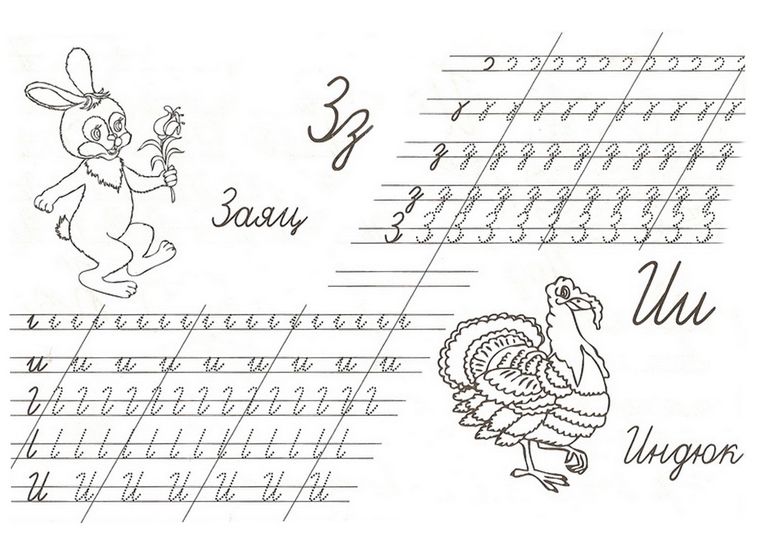 Зз
Заяц
Ии
Индюк